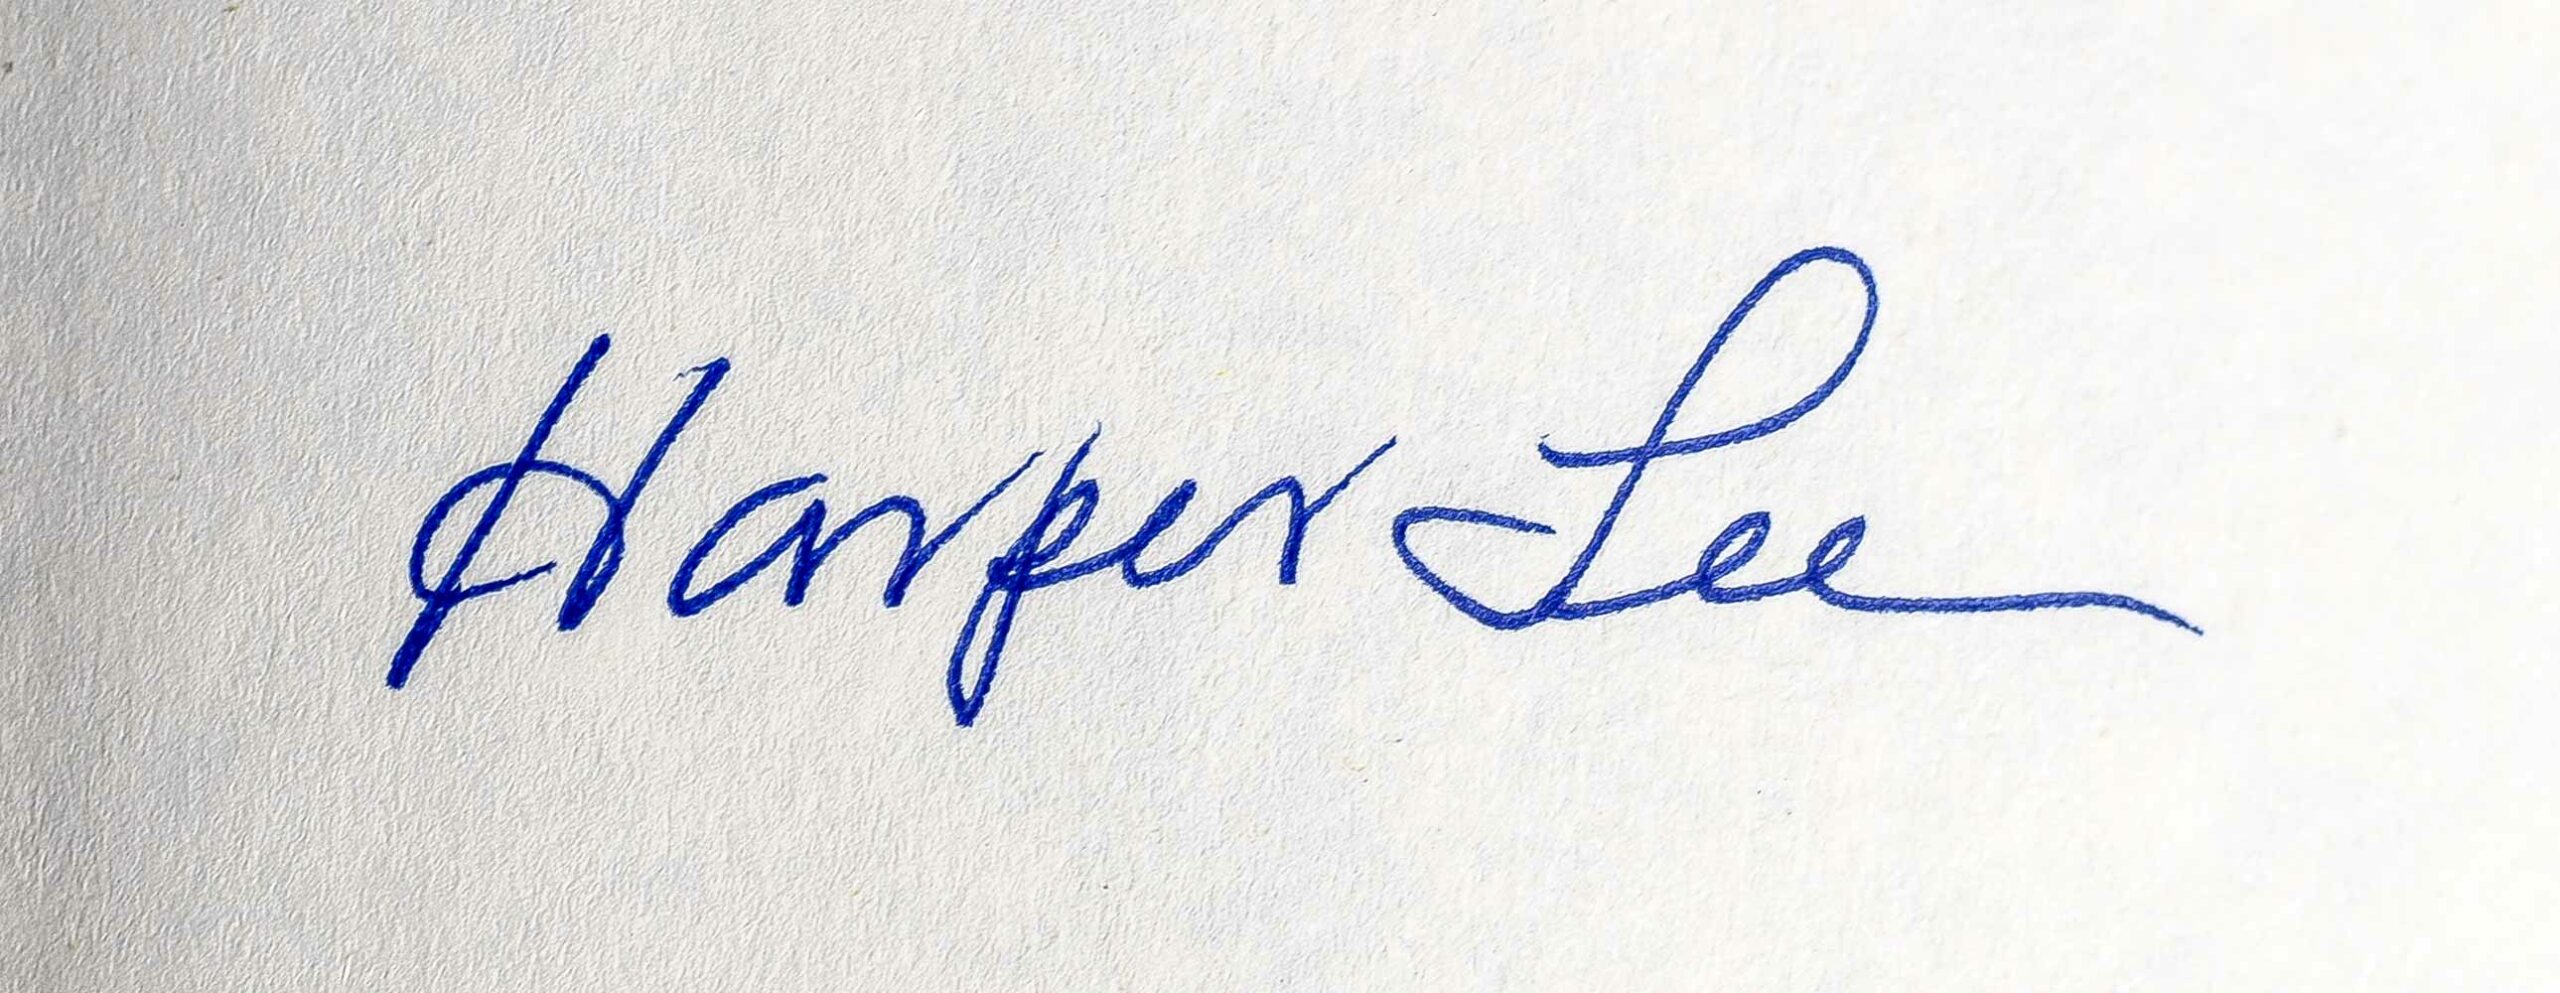 Harper Lee